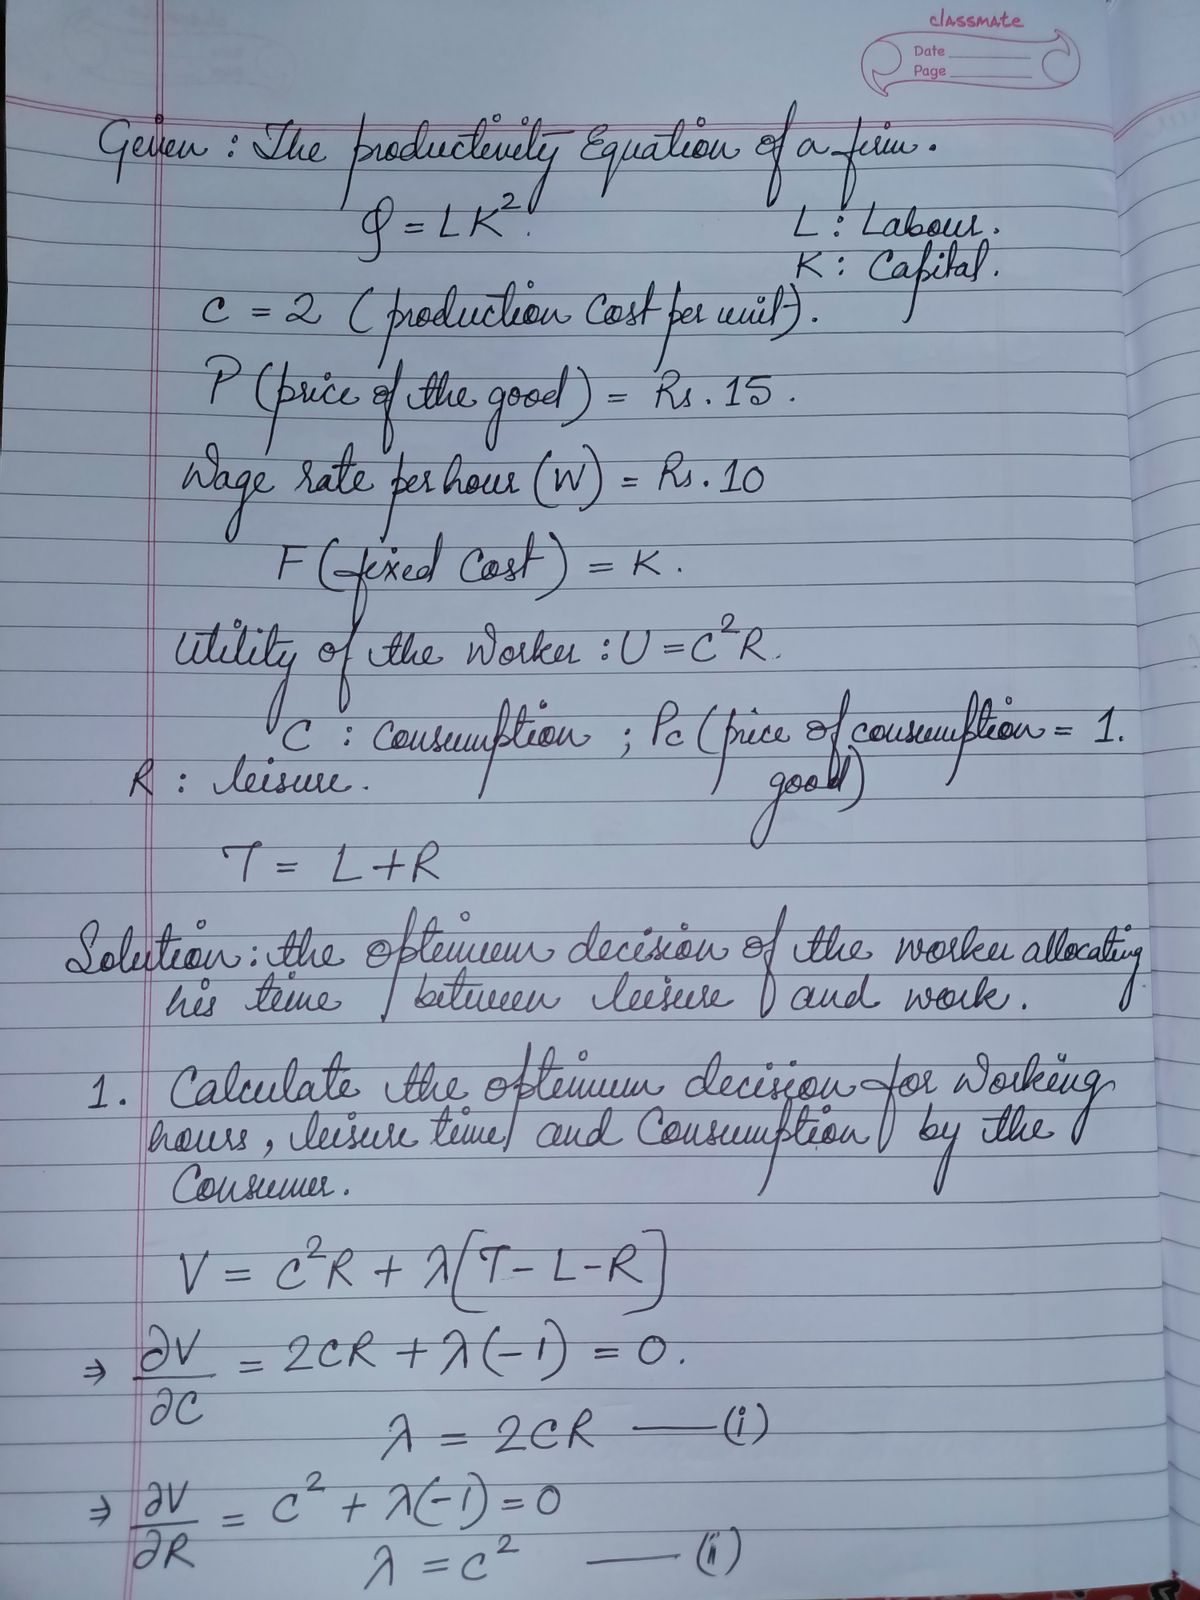 classmate
Date
Page
Given : The productivity Equation of a firm.
Q = LK².
L : Labour.
K : Capital.
C = 2 (production Cost per unit).
P (price of the good) = Rs. 15.
Wage rate per hour (W) = Rs. 10
F (fixed Cost) = K.
Utility of the Worker : U = C²R.
C : Consumption ; Pc (price of consumption = 1.
good)
R : leisure.
T = L + R
Solution : the optimum decision of the worker allocating
his time between leisure and work.
1. Calculate the optimum decision for Working
hours, leisure time and Consumption by the
Consumer.
V = C²R + λ[T - L - R]
⇒ ∂V/∂C = 2CR + λ(-1) = 0.
λ = 2CR —— (i)
⇒ ∂V/∂R = C² + λ(-1) = 0
λ = C² —— (ii)